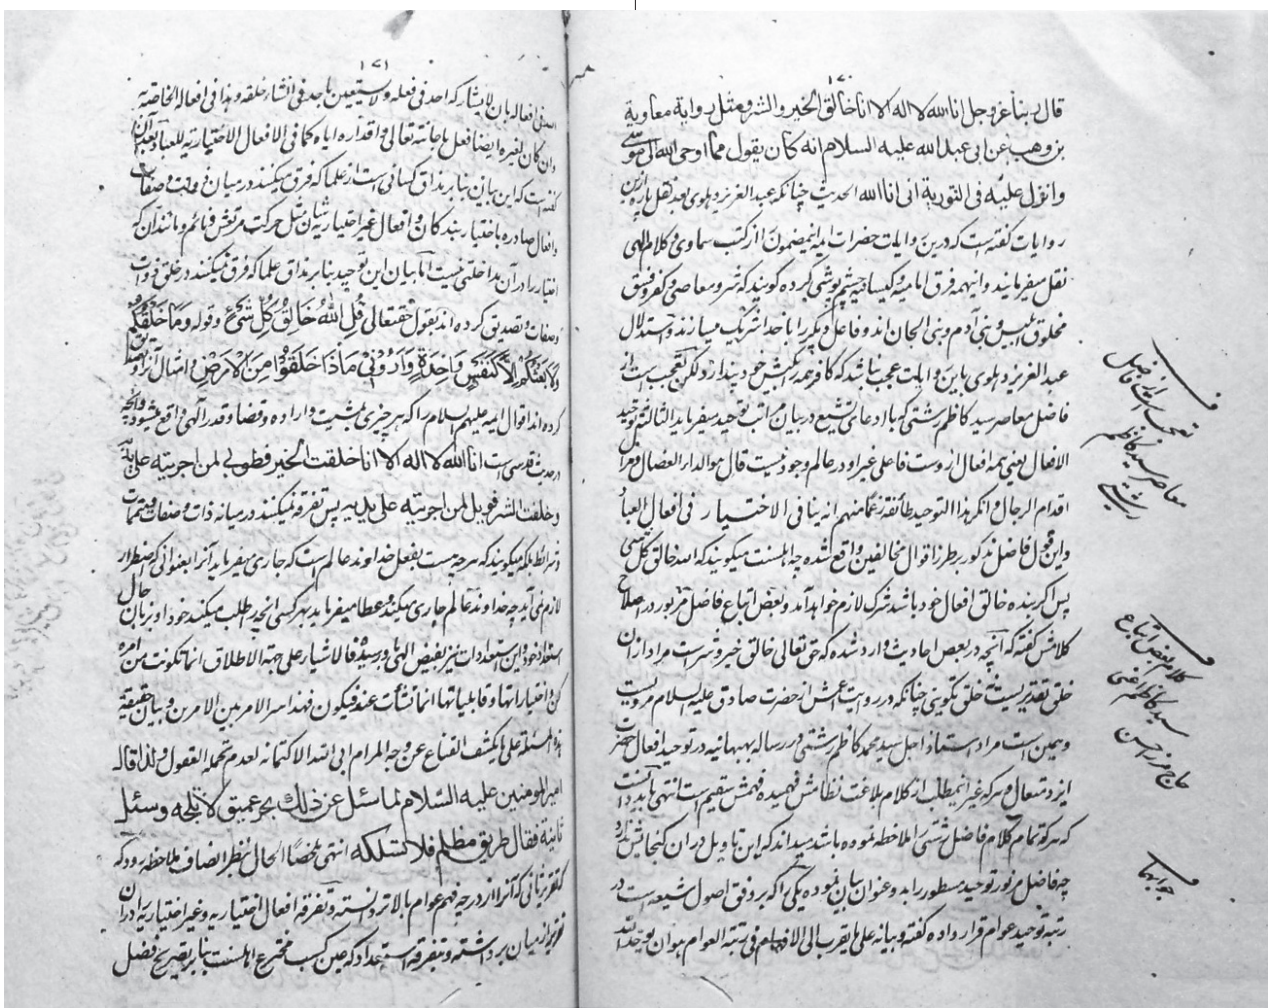 ١٧٠
قال ربنا عز وجل انا الله لا اله الا انا خالق الخیر والشر ومثل روایة معاویة
بن وهب عن ابی عبد الله علیه السلام انه کان یقول مما اوحی الله الی موسی
وانزل علیه فی التوریة انی انا الله الحدیث چنانکه عبد العزیز دهلوی بعد نقل پاره ازین
روایات گفته است که درین روایات حضرات ایمه اینمضمون را از کتب سماوی و کلام الهی
نقل میفرمایند و اینهمه فرق امامیه کیسا چشم پوشی کرده گویند که شر و معاصی و کفر و فسق
مخلوق ابلیس و بنی آدم و بنی الجان اند و فاعل دیگر را با خدا شریک میسازند و استدلال
عبد العزیز دهلوی باین روایات عجب نباشد که کافر همه را کیش خود پندارد لکن تعجب است از
فاضل معاصر سید کاظم رشتی که با ادعای تشیع در بیان مراتب توحید میفرماید الثالثة توحید
الافعال یعنی همه افعال از وست فاعلی غیر او در عالم وجود نیست قال هو الداء العضال و مزال
اقدام الرجال و انکر هذا التوحید طائفة زعما منهم انه ینافی الاختیار فی افعال العباد
واین قول فاضل مذکور بر طرز اقوال مخالفین واقع شده چه اهلسنت میگویند که الله خالق کل شیء
پس اگر بنده خالق افعال خود باشد شرک لازم خواهد آمد و بعض اتباع فاضل مزبور در اصلاح
کلامش گفته که آنچه در بعض احادیث وارد شده که حق تعالی خالق خیر و شر است مراد از ان
خلق تقدیریست نه خلق تکوینی چنانکه در روایت اعمش از حضرت صادق علیه السلام مرویست
و همین است مراد استاد اجل سید محمد کاظم رشتی در رساله بهبهانیه در توحید افعال حضرت
ایزد متعال و هر که غیر اینمطلب از کلام بلاغت نظامش فهمیده فهمش سقیم است انتهی باید دانست
که هر که تمام کلام فاضل رشتی را ملاحظه نموده باشد میداند که این تاویل در ان گنجایش ندارد
چه فاضل مزبور توحید مسطور را بدو عنوان بیان نموده یکی را که بر وفق اصول شیعه است در
رتبه توحید عوام قرار داده گفته و بیانه علی ما یقرب الی الافهام فی رتبة العوام هو ان توحد الله
تعجب است از فاضل
معاصر سید کاظم
رشتی
کلام بعض اتباع
سید کاظم اعنی
حاج میرزا حسن
جوابها
١٧١
فی افعاله بان لا یشارکه احد فی فعله ولا یستعین باحد فی انشاء خلقه وهذا فی افعاله الخاصة به
وان کان لغیره ایضا فعل باعانته تعالی واقداره ایاه کما فی الافعال الاختیاریة للعباد بعد از ان
گفته است که این بیان بنابر مذاق کسانی است از علما که فرق میکنند در میان ذوات و صفات
و افعال صادره باختیار بندگان و افعال غیر اختیاریه شان مثل حرکت مرتعش و نائم و مانند آن که
اختیار را در آن مداخلتی نیست اما بیان این توحید بنابر مذاق علما که فرق نمیکنند در خلق ذوات
و صفات و تصدیق کرده اند بقول حقتعالی قُلِ اللهُ خَالِقُ کُلِّ شَیْءٍ وقوله وَمَا خَلْقُکُمْ
وَلَا بَعْثُکُمْ إِلَّا کَنَفْسٍ وَاحِدَةٍ وَأَرُونِی مَاذَا خَلَقُوا مِنَ الْأَرْضِ و امثال آنرا و تصدیق
کرده اند اقوال ایمه علیهم السلام را که هر چیزی بمشیت و اراده و قضا و قدر آلهی واقع میشود و آنچه
در حدیث قدسی است انا الله لا اله الا انا خلقت الخیر فطوبی لمن اجریته علی یدیه
وخلقت الشر فویل لمن اجریته علی یدیه پس تفرقه نمیکنند در میانه ذات و صفات و متممات
و شرائط بلکه میگویند که هر چه هست بفعل خداوند عالم است که جاری میفرماید آنرا بعنوانی که اضطرار
لازم نمی آید چه خداوند عالم جاری میکند و عطا میفرماید بهر کسی آنچه را طلب میکند خود او بزبان حال
استعداد خود و این استعدادات نیز بفیض الهی با و رسیده فالاشیاء علی جهة الاطلاق انما تکونت من امره
کن واختیاراتها وقابلیاتها انما نشأت عند فیکون فهذا سر الامر بین الامرین وبیان حقیقة
هذه المسئلة علی ما یکشف القناع عن وجه المرام ابی الله الا کتمانه لعدم تحمله العقول ولذا قال
امیر المومنین علیه السلام لما سئل عن ذلك بحر عمیق لا تلجه وسئل
ثانیة فقال طریق مظلم فلا تسلکه انتهی ملخصا الحال بنظر انصاف ملاحظه رود که
تقریر ثانی که آنرا از درجه فهم عوام بالاتر دانسته و تفرقه افعال اختیاریه و غیر اختیاریه را در ان
تقریر از میان برداشته و تفرقه استعداد که عین کسب مخترع اهلسنت بنابر تصریح فضل